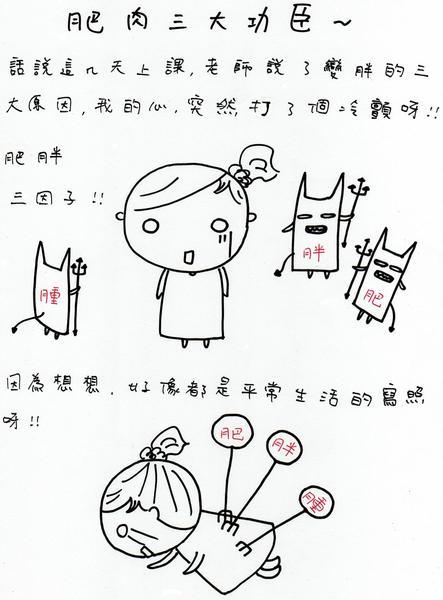 肥肉三大功臣~
話說這幾天上課,老師說了變胖的三
大原因,我的心,突然打了個冷顫呀!!
肥胖
三因子!!
胖
腫
肥
因為想想,好像都是平常生活的寫照
呀!!
肥
胖
腫